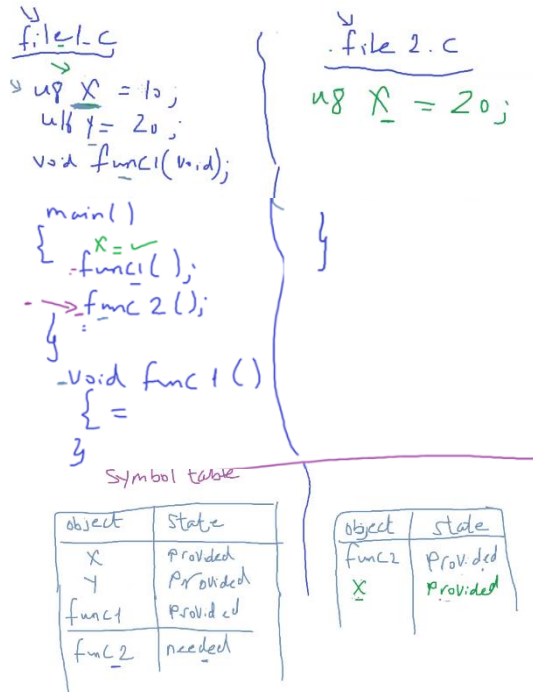 file1.c
u8 X = 10;
u16 y = 20;
void func1(void);
main()
{
X =
func1();
func2();
}
void func1()
{ =
}
file 2.c
u8 X = 20;
}
Symbol table
object state
X Provided
Y Provided
func1 Provided
func2 needed
object state
func2 Provided
X Provided